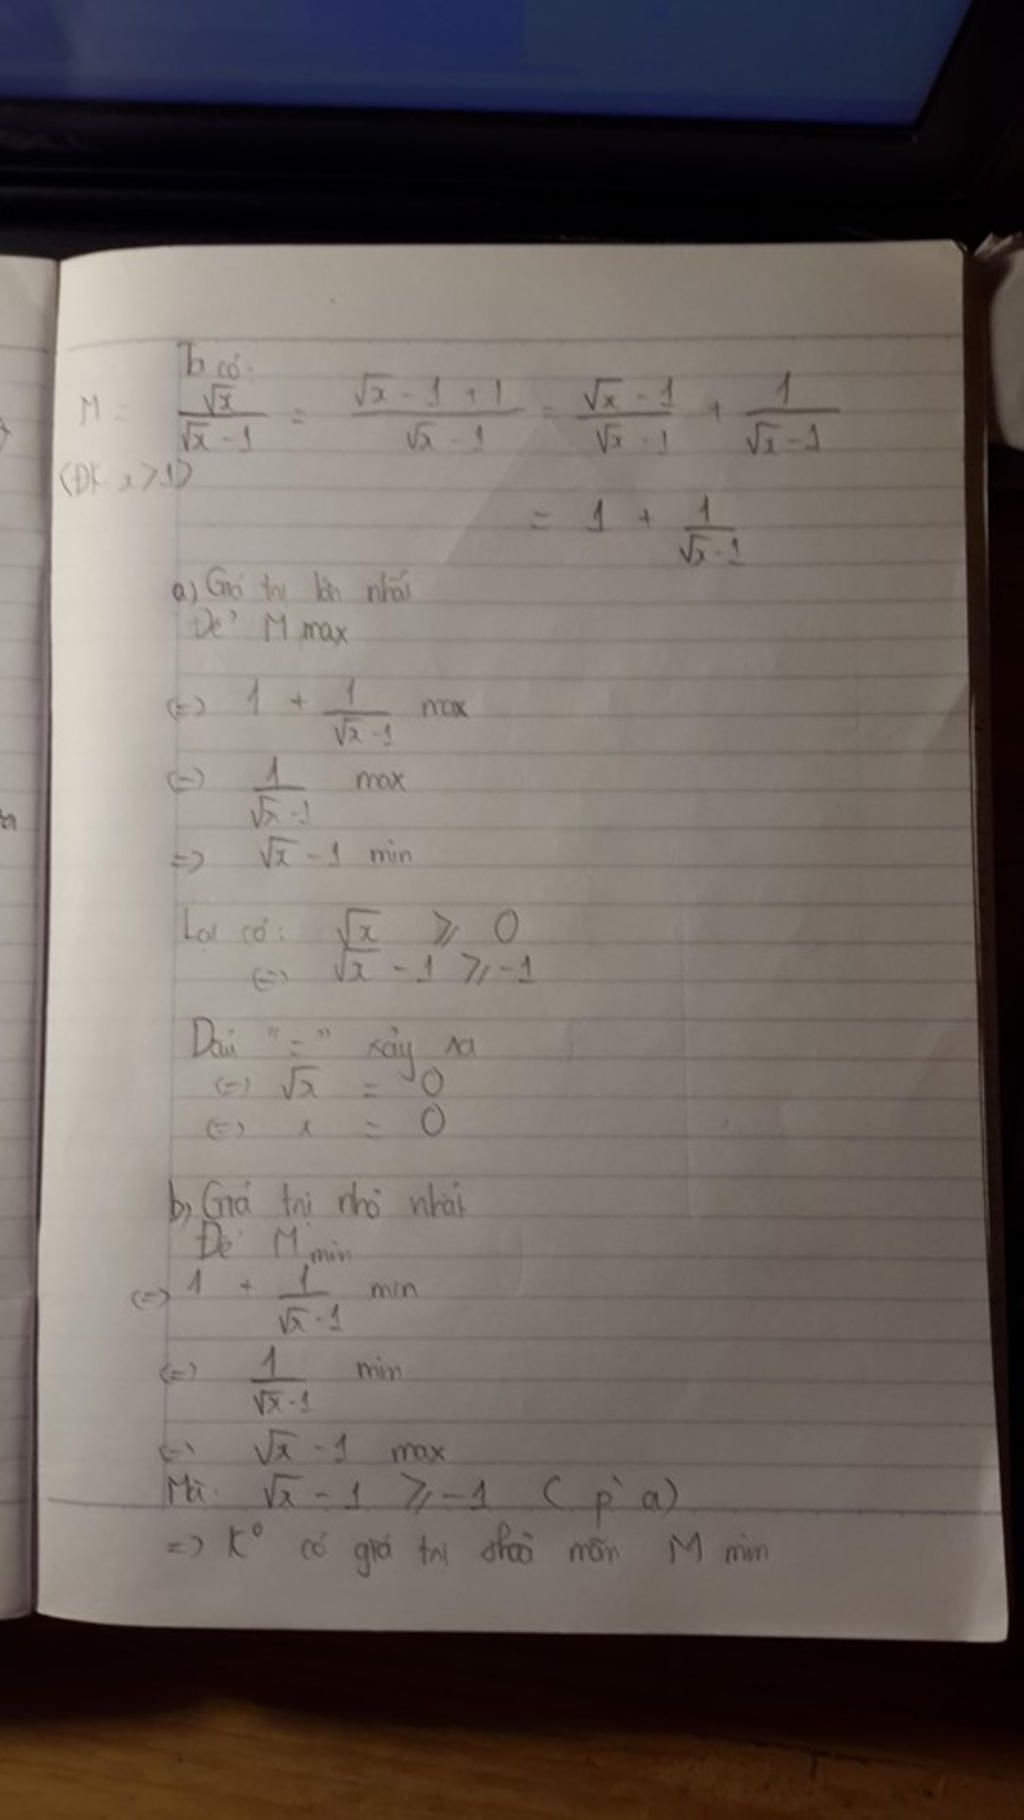 Ta có:
M = √x / (√x - 1) = (√x - 1 + 1) / (√x - 1) = (√x - 1) / (√x - 1) + 1 / (√x - 1)
(ĐK x > 1)
= 1 + 1 / (√x - 1)
a) Giá trị lớn nhất
Để M max
<=> 1 + 1 / (√x - 1) max
<=> 1 / (√x - 1) max
=> √x - 1 min
Lại có: √x ⩾ 0
<=> √x - 1 ⩾ -1
Dấu "=" xảy ra
<=> √x = 0
<=> x = 0
b) Giá trị nhỏ nhất
Để M min
<=> 1 + 1 / (√x - 1) min
<=> 1 / (√x - 1) min
<=> √x - 1 max
Mà √x - 1 ⩾ -1 (p a)
=> K° có giá trị thoả mãn M min